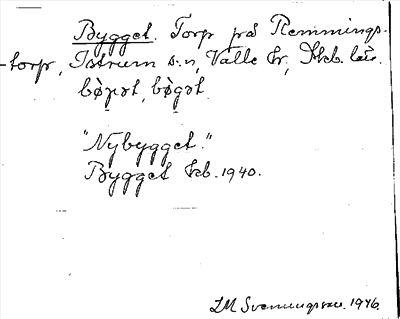 Bygget. Torp på Remmings-
-torp, Istrum s:n, Valle hr, Skb. län.
bø̀ɲət, bø̀gət
"Nybygget."
Bygget kb. 1940.
LM Svenungsson. 1946.